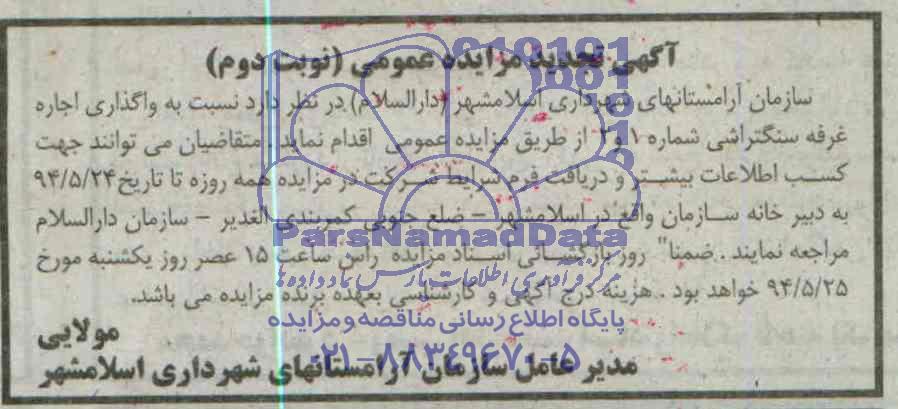 آگهی تجدید مزایده عمومی (نوبت دوم)
سازمان آرامستانهای شهرداری اسلامشهر (دارالسلام) در نظر دارد نسبت به واگذاری اجاره
غرفه سنگتراشی شماره ۱ و ۲ از طریق مزایده عمومی اقدام نماید. متقاضیان می توانند جهت
کسب اطلاعات بیشتر و دریافت فرم شرایط شرکت در مزایده همه روزه تا تاریخ ۹۴/۵/۲۴
به دبیر خانه سازمان واقع در اسلامشهر – ضلع جنوبی کمربندی الغدیر – سازمان دارالسلام
مراجعه نمایند. ضمنا" روز بازگشائی اسناد مزایده راس ساعت ۱۵ عصر روز یکشنبه مورخ
۹۴/۵/۲۵ خواهد بود. هزینه درج آگهی و کارشناسی بعهده برنده مزایده می باشد.
مولایی
مدیر عامل سازمان آرامستانهای شهرداری اسلامشهر
ParsNamadData
مرکز فرآوری اطلاعات پارس نماد داده ها
پایگاه اطلاع رسانی مناقصه و مزایده
۰۲۱-۸۸۳۴۹۶۷۰-۵